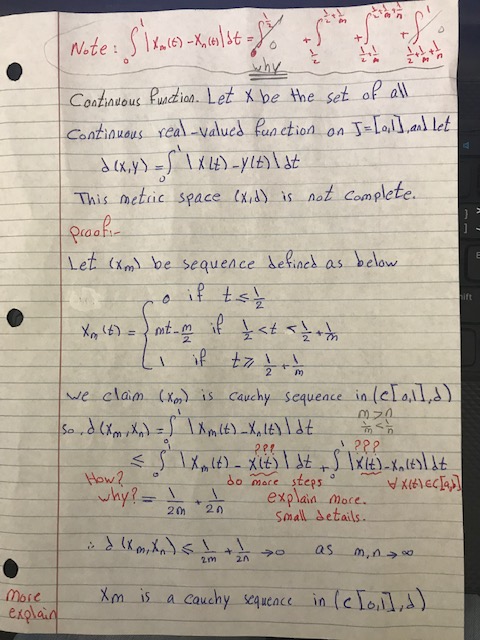 Note: ∫₀¹ |Xm(t) - Xn(t)| dt = ∫₀^{1/2} + ∫_{1/2}^{1/2+1/m} + ∫_{1/2+1/m}^{1/2+1/m+1/n} + ∫_{1/2+1/m+1/n}^{1}
why
Continuous function. Let X be the set of all
Continuous real-valued function on J=[0,1], and let
d(x,y) = ∫₀¹ |X(t) - y(t)| dt
This metric space (X,d) is not complete.
proof:-
Let (xm) be sequence defined as below
0 if t ≤ 1/2
Xm(t) = { mt - m/2 if 1/2 < t < 1/2 + 1/m
1 if t ≥ 1/2 + 1/m
we claim (xm) is cauchy sequence in (C[0,1], d)
m > n
so, d(xm, xn) = ∫₀¹ |Xm(t) - Xn(t)| dt 1/m < 1/n
??? ???
≤ ∫₀¹ |Xm(t) - X(t)| dt + ∫₀¹ |X(t) - Xn(t)| dt
How? do more steps ∀ X(t) ∈ C[a,b]
why? = 1/2m + 1/2n explain more.
small details.
∴ d(Xm, Xn) ≤ 1/2m + 1/2n → 0 as m,n → ∞
more
explain
Xm is a cauchy sequence in (C[0,1], d)